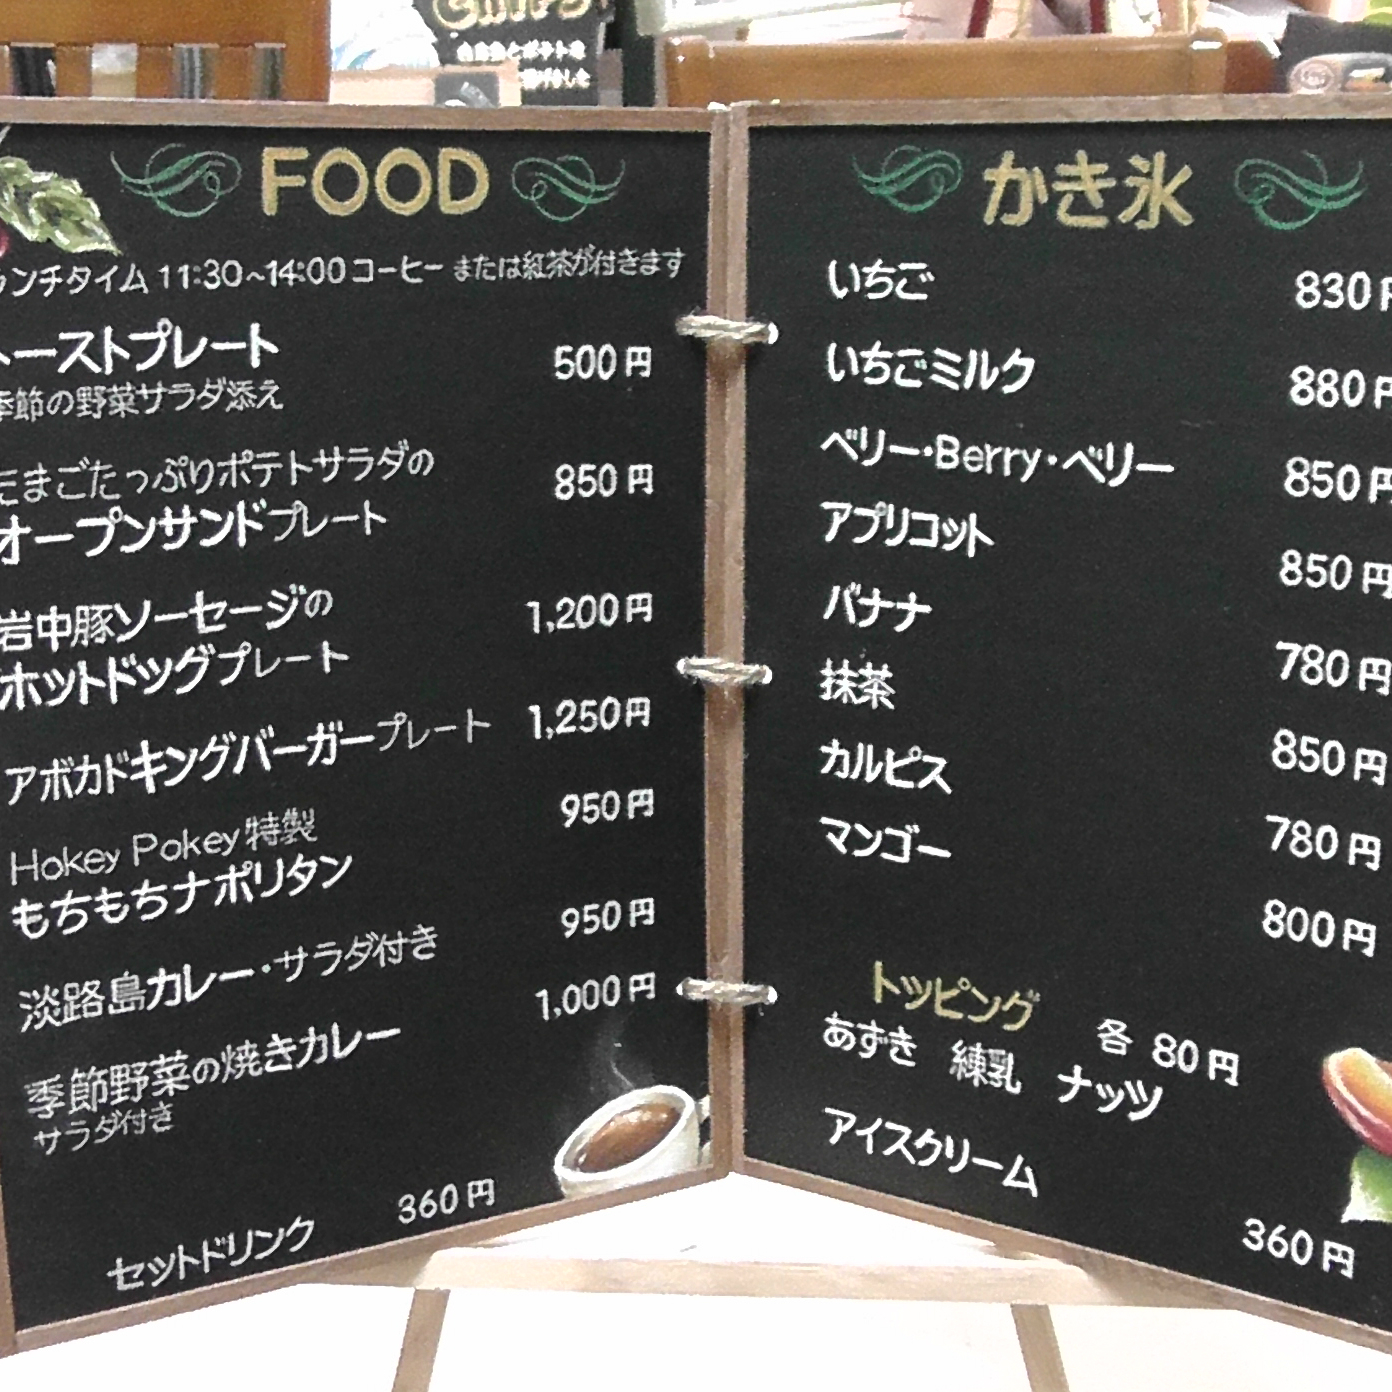 Chips
FOOD
ランチタイム 11:30~14:00 コーヒー または紅茶が付きます
トーストプレート 500円
季節の野菜サラダ添え
たまごたっぷりポテトサラダの 850円
オープンサンドプレート
岩中豚ソーセージの 1,200円
ホットドッグプレート
アボカドキングバーガープレート 1,250円
Hokey Pokey特製 950円
もちもちナポリタン
淡路島カレー・サラダ付き 950円
季節野菜の焼きカレー 1,000円
サラダ付き
セットドリンク 360円
かき氷
いちご 830円
いちごミルク 880円
ベリー・Berry・ベリー 850円
アプリコット 850円
バナナ 780円
抹茶 850円
カルピス 780円
マンゴー 800円
トッピング 各 80円
あずき 練乳 ナッツ
アイスクリーム 360円